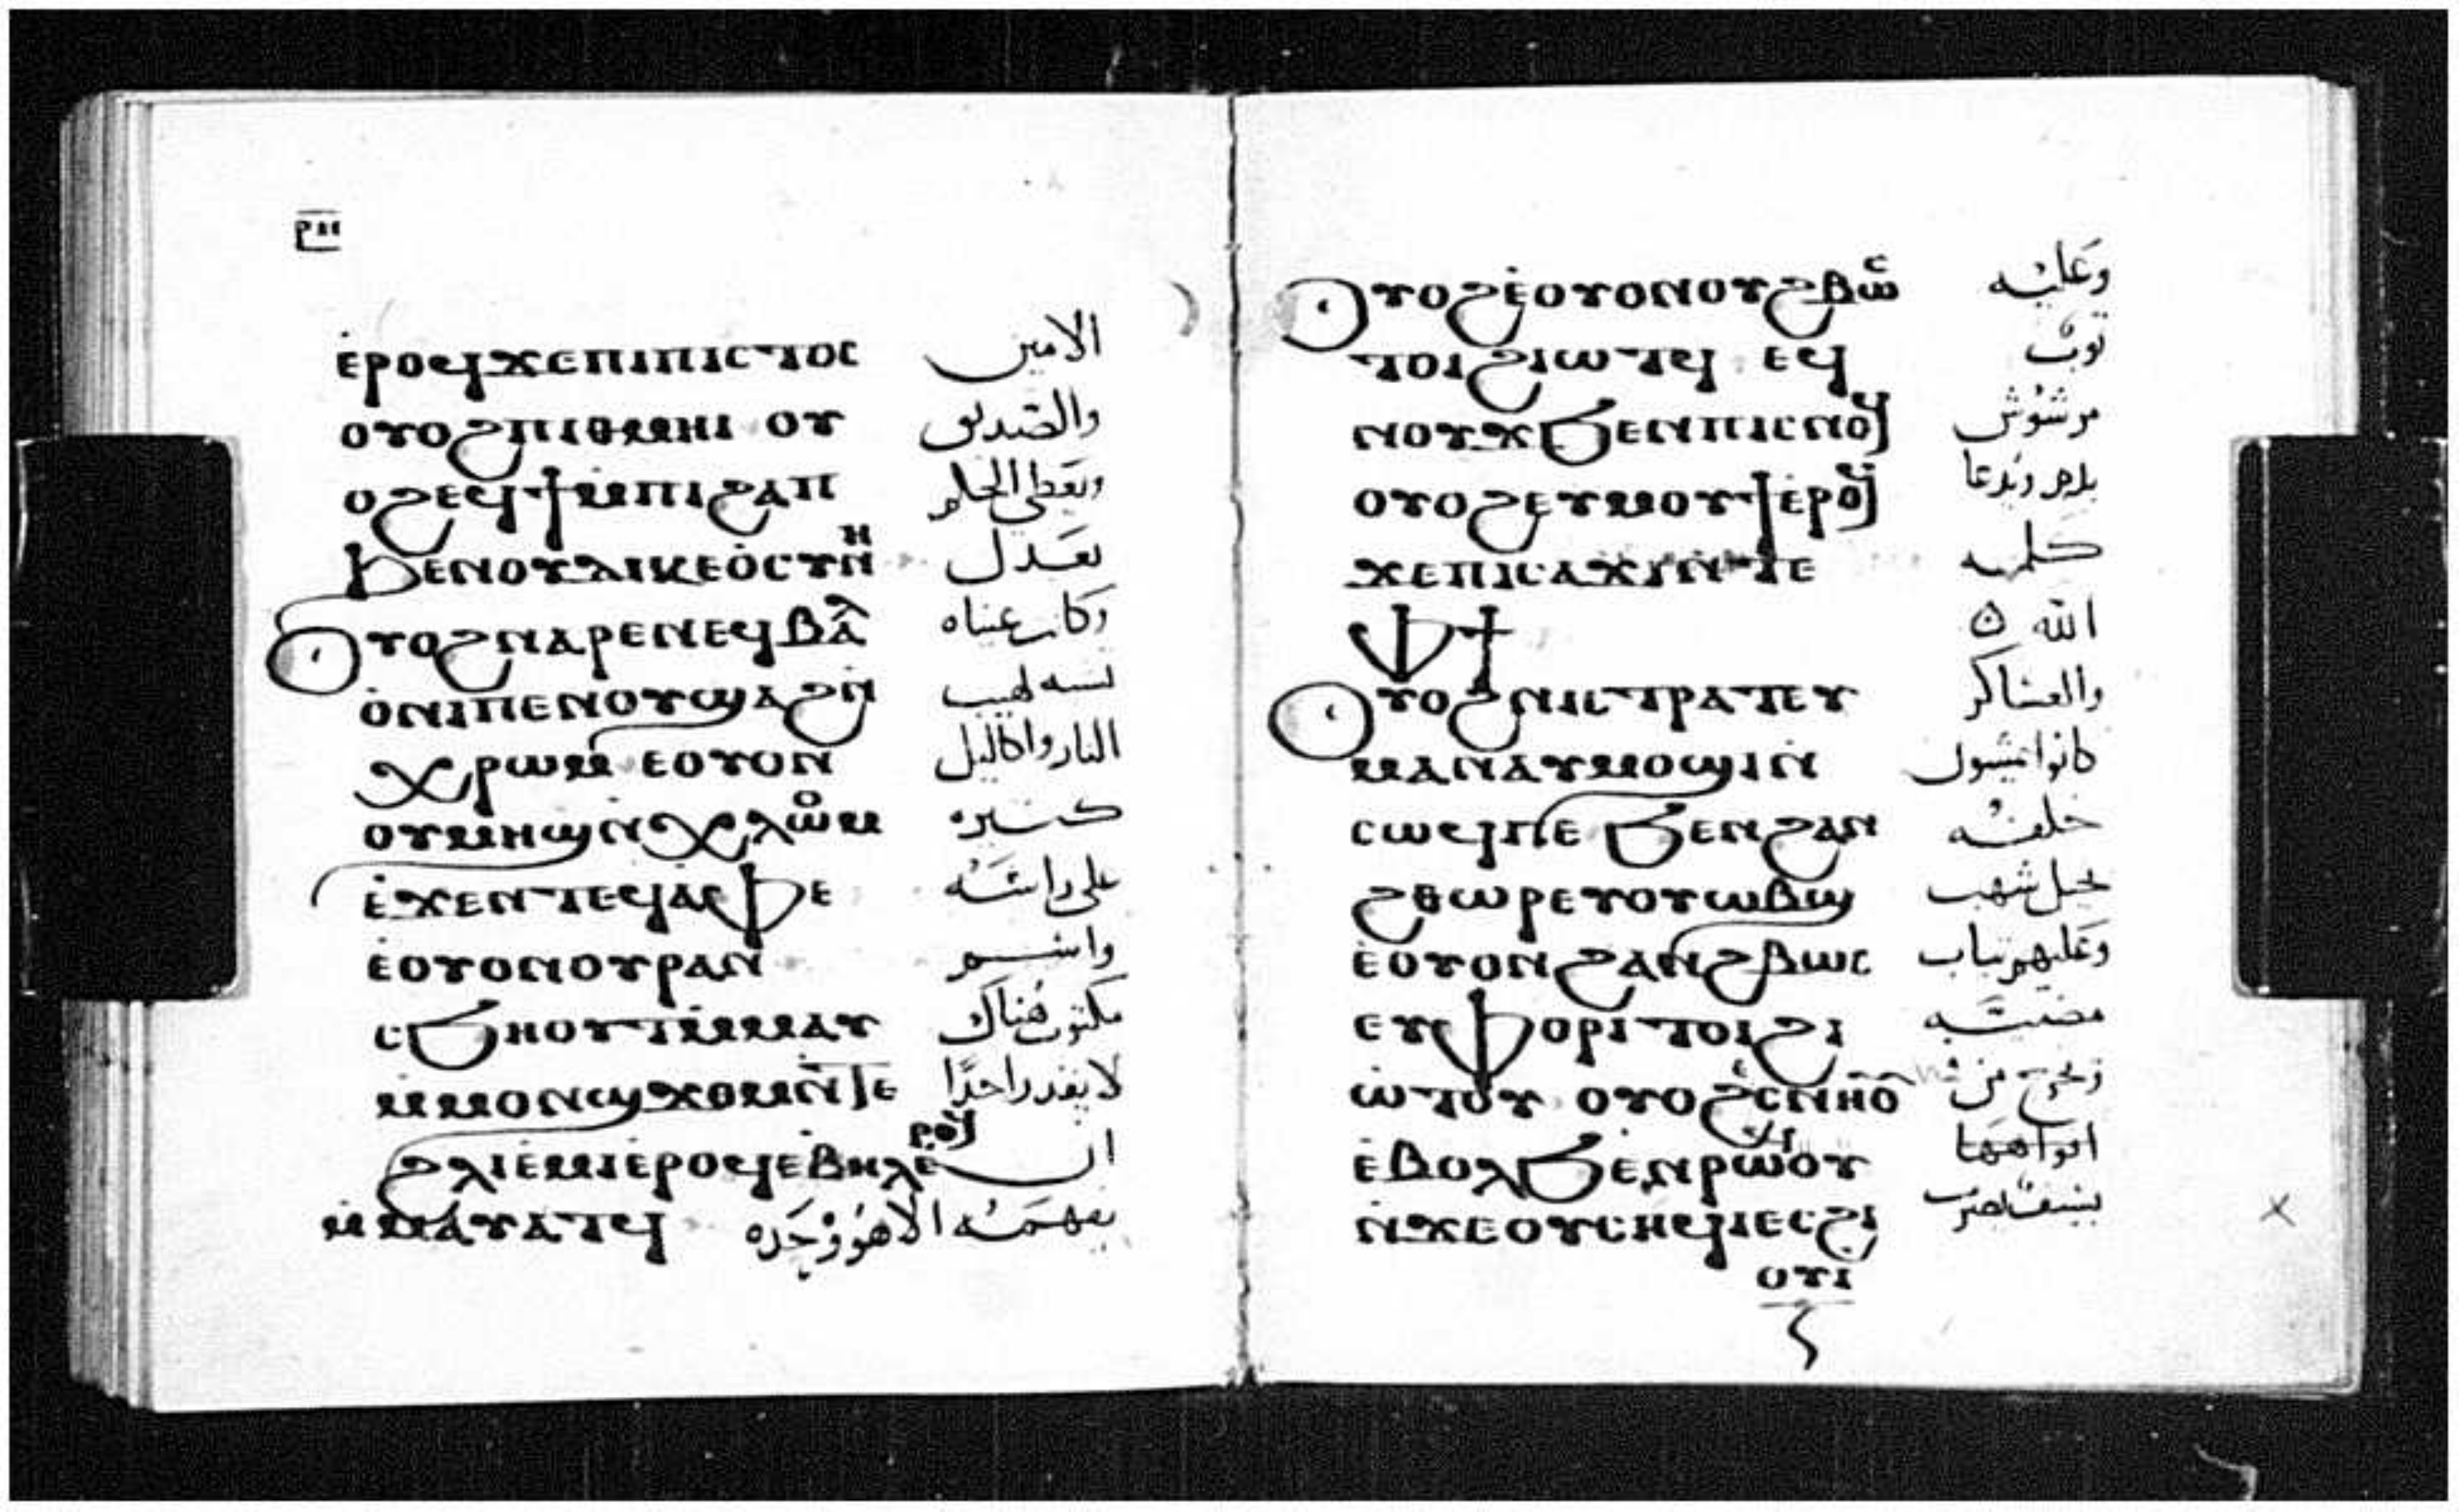 ⲣⲏ
ⲉ̀ⲣⲟϥϫⲉⲡⲓⲡⲓⲥⲧⲟⲥ الامين
ⲟⲩⲟϩⲡⲓⲑⲙⲏⲓ ⲟⲩ والصديق
ⲟϩⲉϥϯⲙ̀ⲡⲓϩⲁⲡ ويعطي الحكم
ϧⲉⲛⲟⲩⲇⲓⲕⲉⲟ̀ⲥⲩⲛⲏ بعدل
ⲟⲩⲟϩⲛⲁⲣⲉⲛⲉϥⲃⲁⲗ وكان عيناه
ⲟ̀ⲛⲓⲡⲉⲛⲟⲩϣⲁϩⲛ̀ تشبه لهيب
ⲭⲣⲱⲙ ⲉⲟⲩⲟⲛ النار واكاليل
ⲟⲩⲙⲏϣⲛ̀ⲭⲗⲟⲙ كثيره
ⲉ̀ϫⲉⲛⲧⲉϥⲁ̀ⲫⲉ على راسه
ⲉ̀ⲟⲩⲟⲛⲟⲩⲣⲁⲛ واسم
ⲥϧⲏⲟⲩⲧⲙ̀ⲙⲁⲩ مكتوب هناك
ⲙ̀ⲙⲟⲛϣϫⲟⲙⲛ̀ⲧⲉ لا يقدر احدًا
ϩⲗⲓⲉ̀ⲙⲓⲉ̀ⲣⲟϥⲉ̀ⲃⲏⲗⲉ̀ⲣⲟϥ ان
ⲙ̀ⲙⲁ̀ⲩⲁⲧϥ يفهمه الا هو وحده
ⲟⲩⲟϩⲉ̀ⲟⲩⲟⲛⲟⲩϩⲃⲱⲥ وعليه
ⲧⲟⲓϩⲓⲱⲧϥ ⲉϥ ثوب
ⲛⲟⲩϫϧⲉⲛⲡⲓⲥⲛⲟϥ مرشوش
ⲟⲩⲟϩⲉⲩⲙⲟⲩϯⲉ̀ⲣⲟϥ بدم ويدعا
ϫⲉⲡⲓⲥⲁϫⲓⲛ̀ⲧⲉ كلمه
ⲫϯ الله
ⲟⲩⲟϩⲛⲓⲥⲧⲣⲁⲧⲉⲩ والعساكر
ⲙⲁⲛⲁⲩⲙⲟϣⲓⲛ̀ كانوا يمشون
ⲥⲱϥⲡⲉ ϧⲉⲛϩⲁⲛ خلفه
ϩⲑⲱⲣⲉⲩⲟⲩⲱⲃϣ بخيل شهب
ⲉ̀ⲟⲩⲟⲛϩⲁⲛϩⲃⲱⲥ وعليهم ثياب
ⲉⲩⲫⲟⲣⲓⲧⲟⲓϩⲓ
ⲱ̀ⲧⲟⲩ ⲟⲩⲟϩⲉ̀ⲥⲛⲏⲟⲩ وتخرج من
ⲉ̀ⲃⲟⲗϧⲉⲛⲣⲱⲟⲩ افواهها
ⲛ̀ϫⲉⲟⲩⲥⲏϥⲓⲉⲥϩⲓ
ⲟⲩⲓ